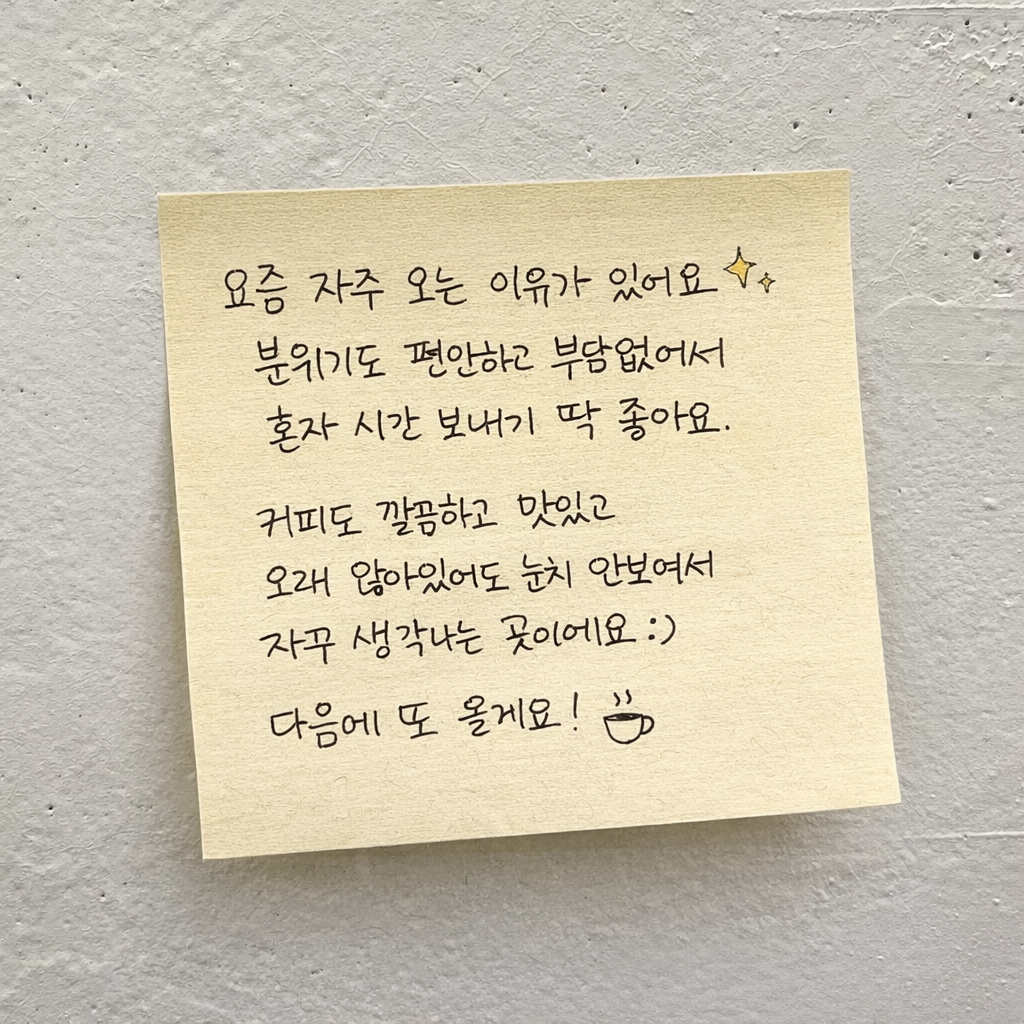 요즘 자주 오는 이유가 있어요
분위기도 편안하고 부담없어서
혼자 시간 보내기 딱 좋아요.
커피도 깔끔하고 맛있고
오래 앉아있어도 눈치 안보여서
자꾸 생각나는 곳이에요 :)
다음에 또 올게요!